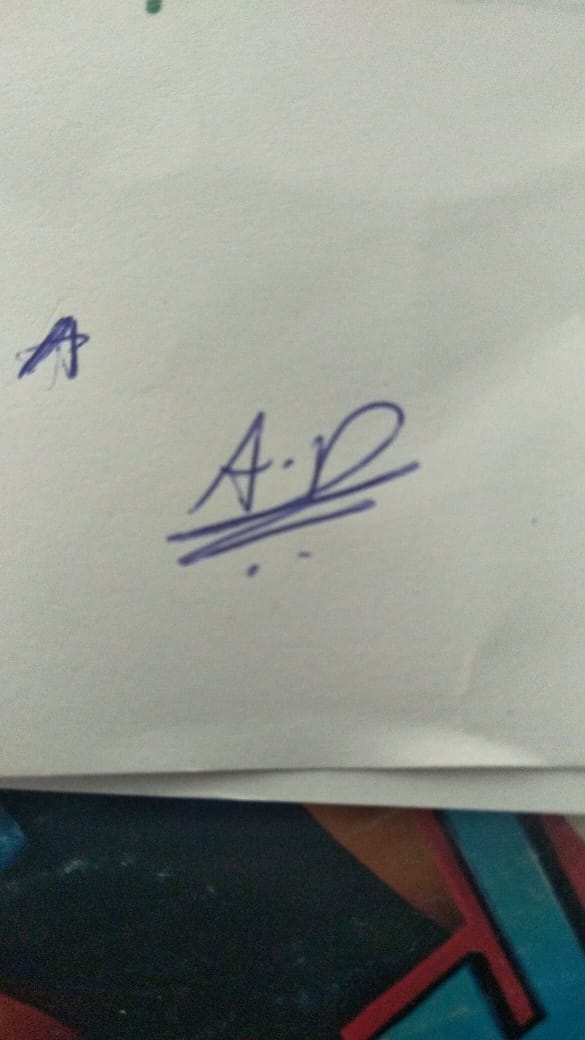 A
A.D